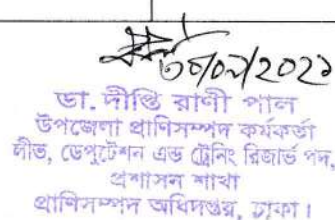 ৩০/০৯/২০২১
ডা. দীপ্তি রাণী পাল
উপজেলা প্রাণিসম্পদ কর্মকর্তা
লীভ, ডেপুটেশন এন্ড ট্রেনিং রিজার্ভ পদ,
প্রশাসন শাখা
প্রাণিসম্পদ অধিদপ্তর, ঢাকা।